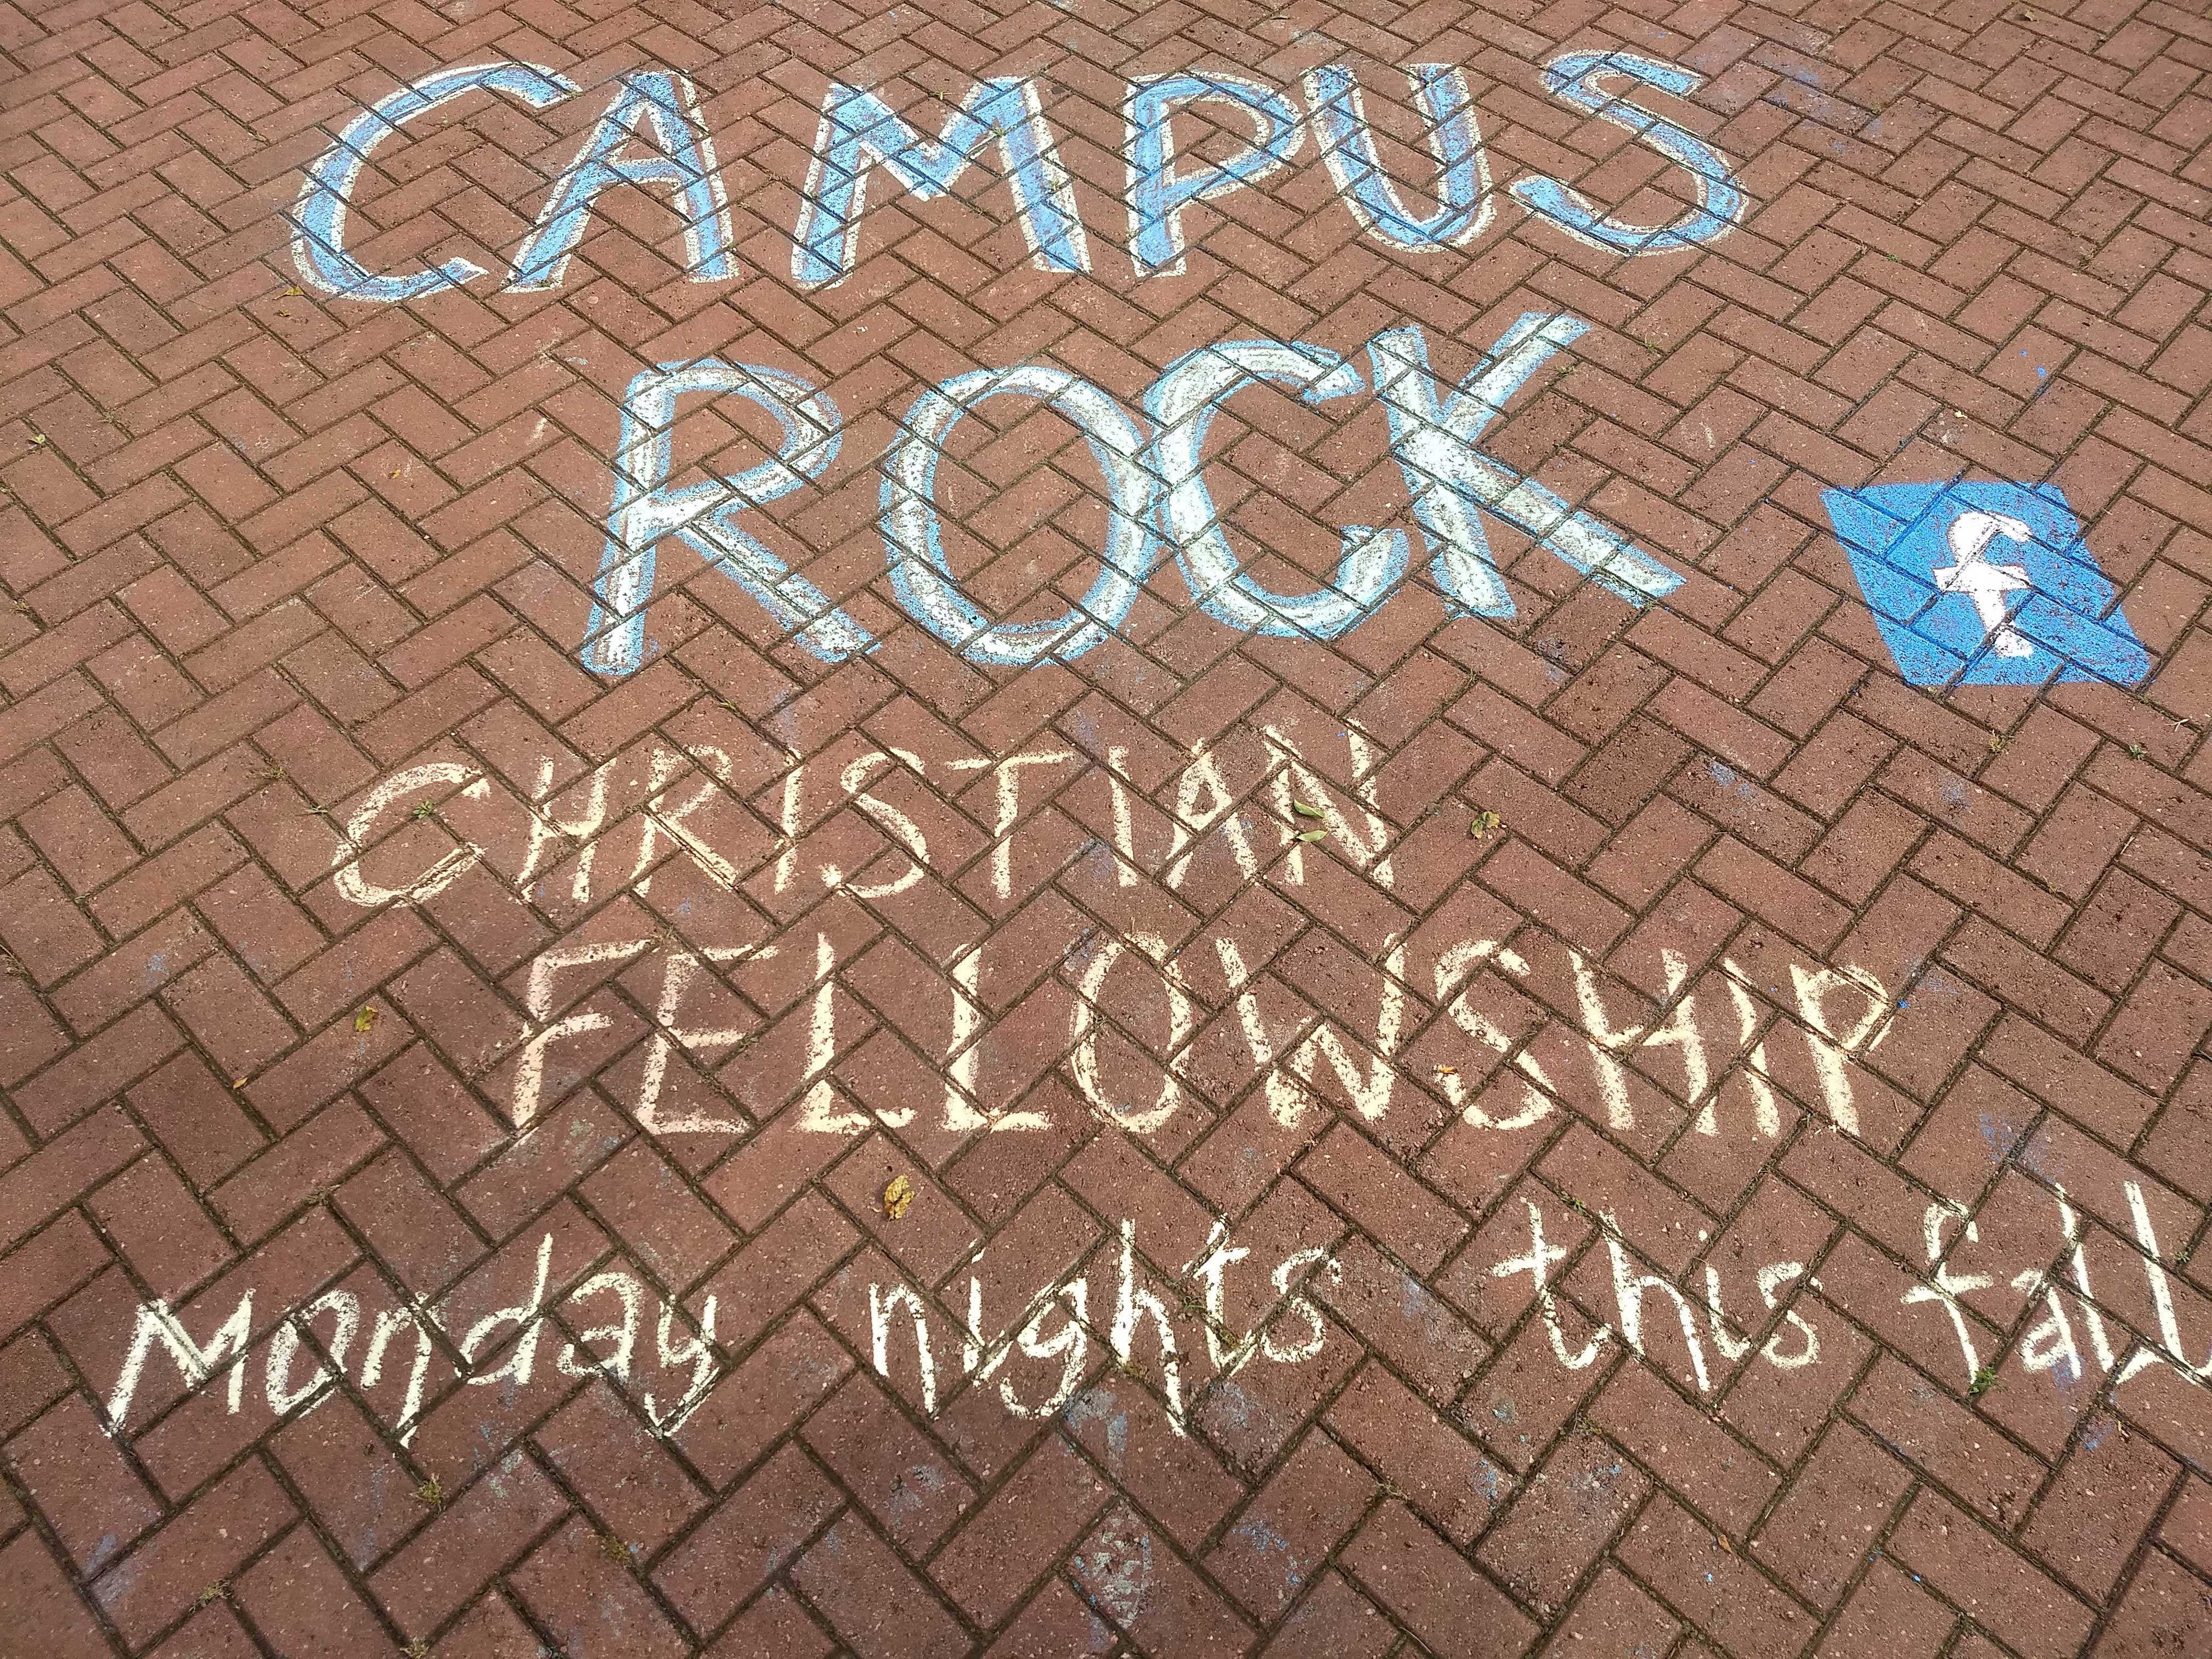 CAMPUS
ROCK
f
CHRISTIAN
FELLOWSHIP
Monday nights this fall